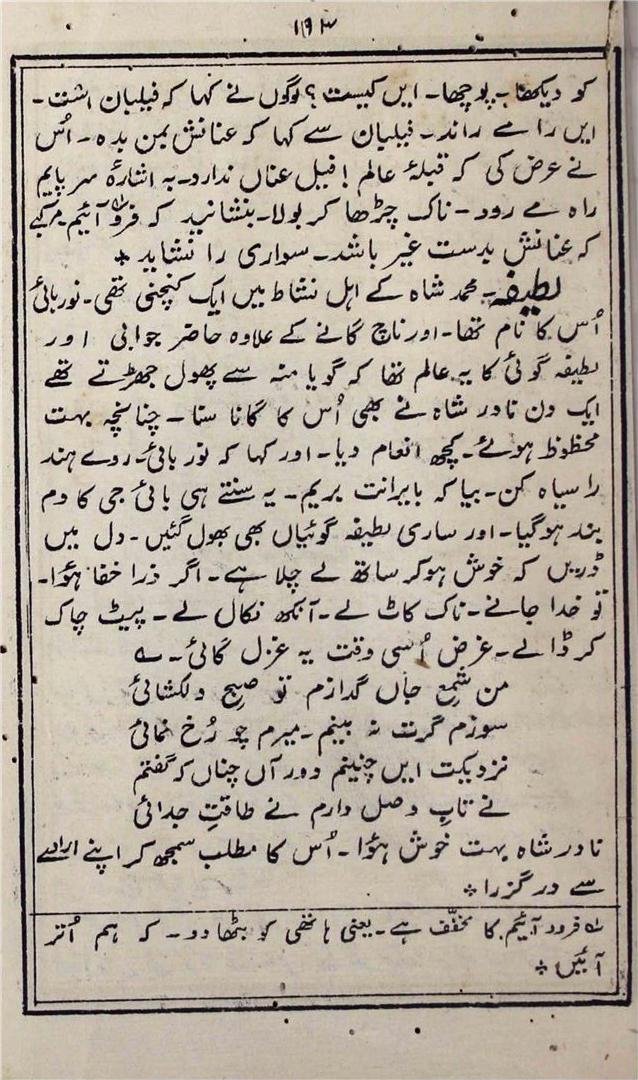 ۱۹۳
کو دیکھا۔ پوچھا۔ ایں کیست؟ لوگوں نے کہا کہ فیلبان است۔
ایں را مے راند۔ فیلبان سے کہا کہ عنانش بمن بدہ۔ اُس
نے عرض کی کہ قبلۂ عالم! فیل عناں ندارد۔ بہ اشارۂ سر پایم
راہ مے رود۔ ناک چڑھا کر بولا۔ بنشانید کہ فرو آئیم۔ مرکبے
کہ عنانش بدست غیر باشد۔ سواری را نشاید ❖
لطیفہ۔ محمد شاہ کے اہل نشاط میں ایک کنچنی تھی۔ نور بائی
اُس کا نام تھا۔ اور ناچ گانے کے علاوہ حاضر جوابی اور
لطیفہ گوئی کا یہ عالم تھا کہ گویا منہ سے پھول جھڑتے تھے
ایک دن نادر شاہ نے بھی اُس کا گانا سنا۔ چنانچہ بہت
محظوظ ہوئے۔ کچھ انعام دیا۔ اور کہا کہ نور بائی۔ روے ہند
را سیاہ کن۔ بیا کہ بایرانت بریم۔ یہ سنتے ہی بائی جی کا دم
بند ہوگیا۔ اور ساری لطیفہ گوئیاں بھی بھول گئیں۔ دل میں
ڈریں کہ خوش ہوکر ساتھ لے چلا ہے۔ اگر ذرا خفا ہؤا۔
تو خدا جانے۔ ناک کاٹ لے۔ آنکھ نکال لے۔ پیٹ چاک
کر ڈالے۔ غرض اُسی وقت یہ غزل گائی۔ ؎
من شمع جاں گدازم تو صبح دلکشائی
سوزم گرت نہ بینم۔ میرم چو رُخ نمائی
نزدیکت ایں چنینم دور آں چناں کہ گفتم
نے تاب وصل دارم نے طاقتِ جدائی
نادر شاہ بہت خوش ہؤا۔ اُس کا مطلب سمجھ کر اپنے ارادے
سے درگزرا ❖
لہ فرود آئیم۔ کا مخفّف ہے۔ یعنی ہاتھی کو بٹھا دو۔ کہ ہم اُتر
آئیں ❖